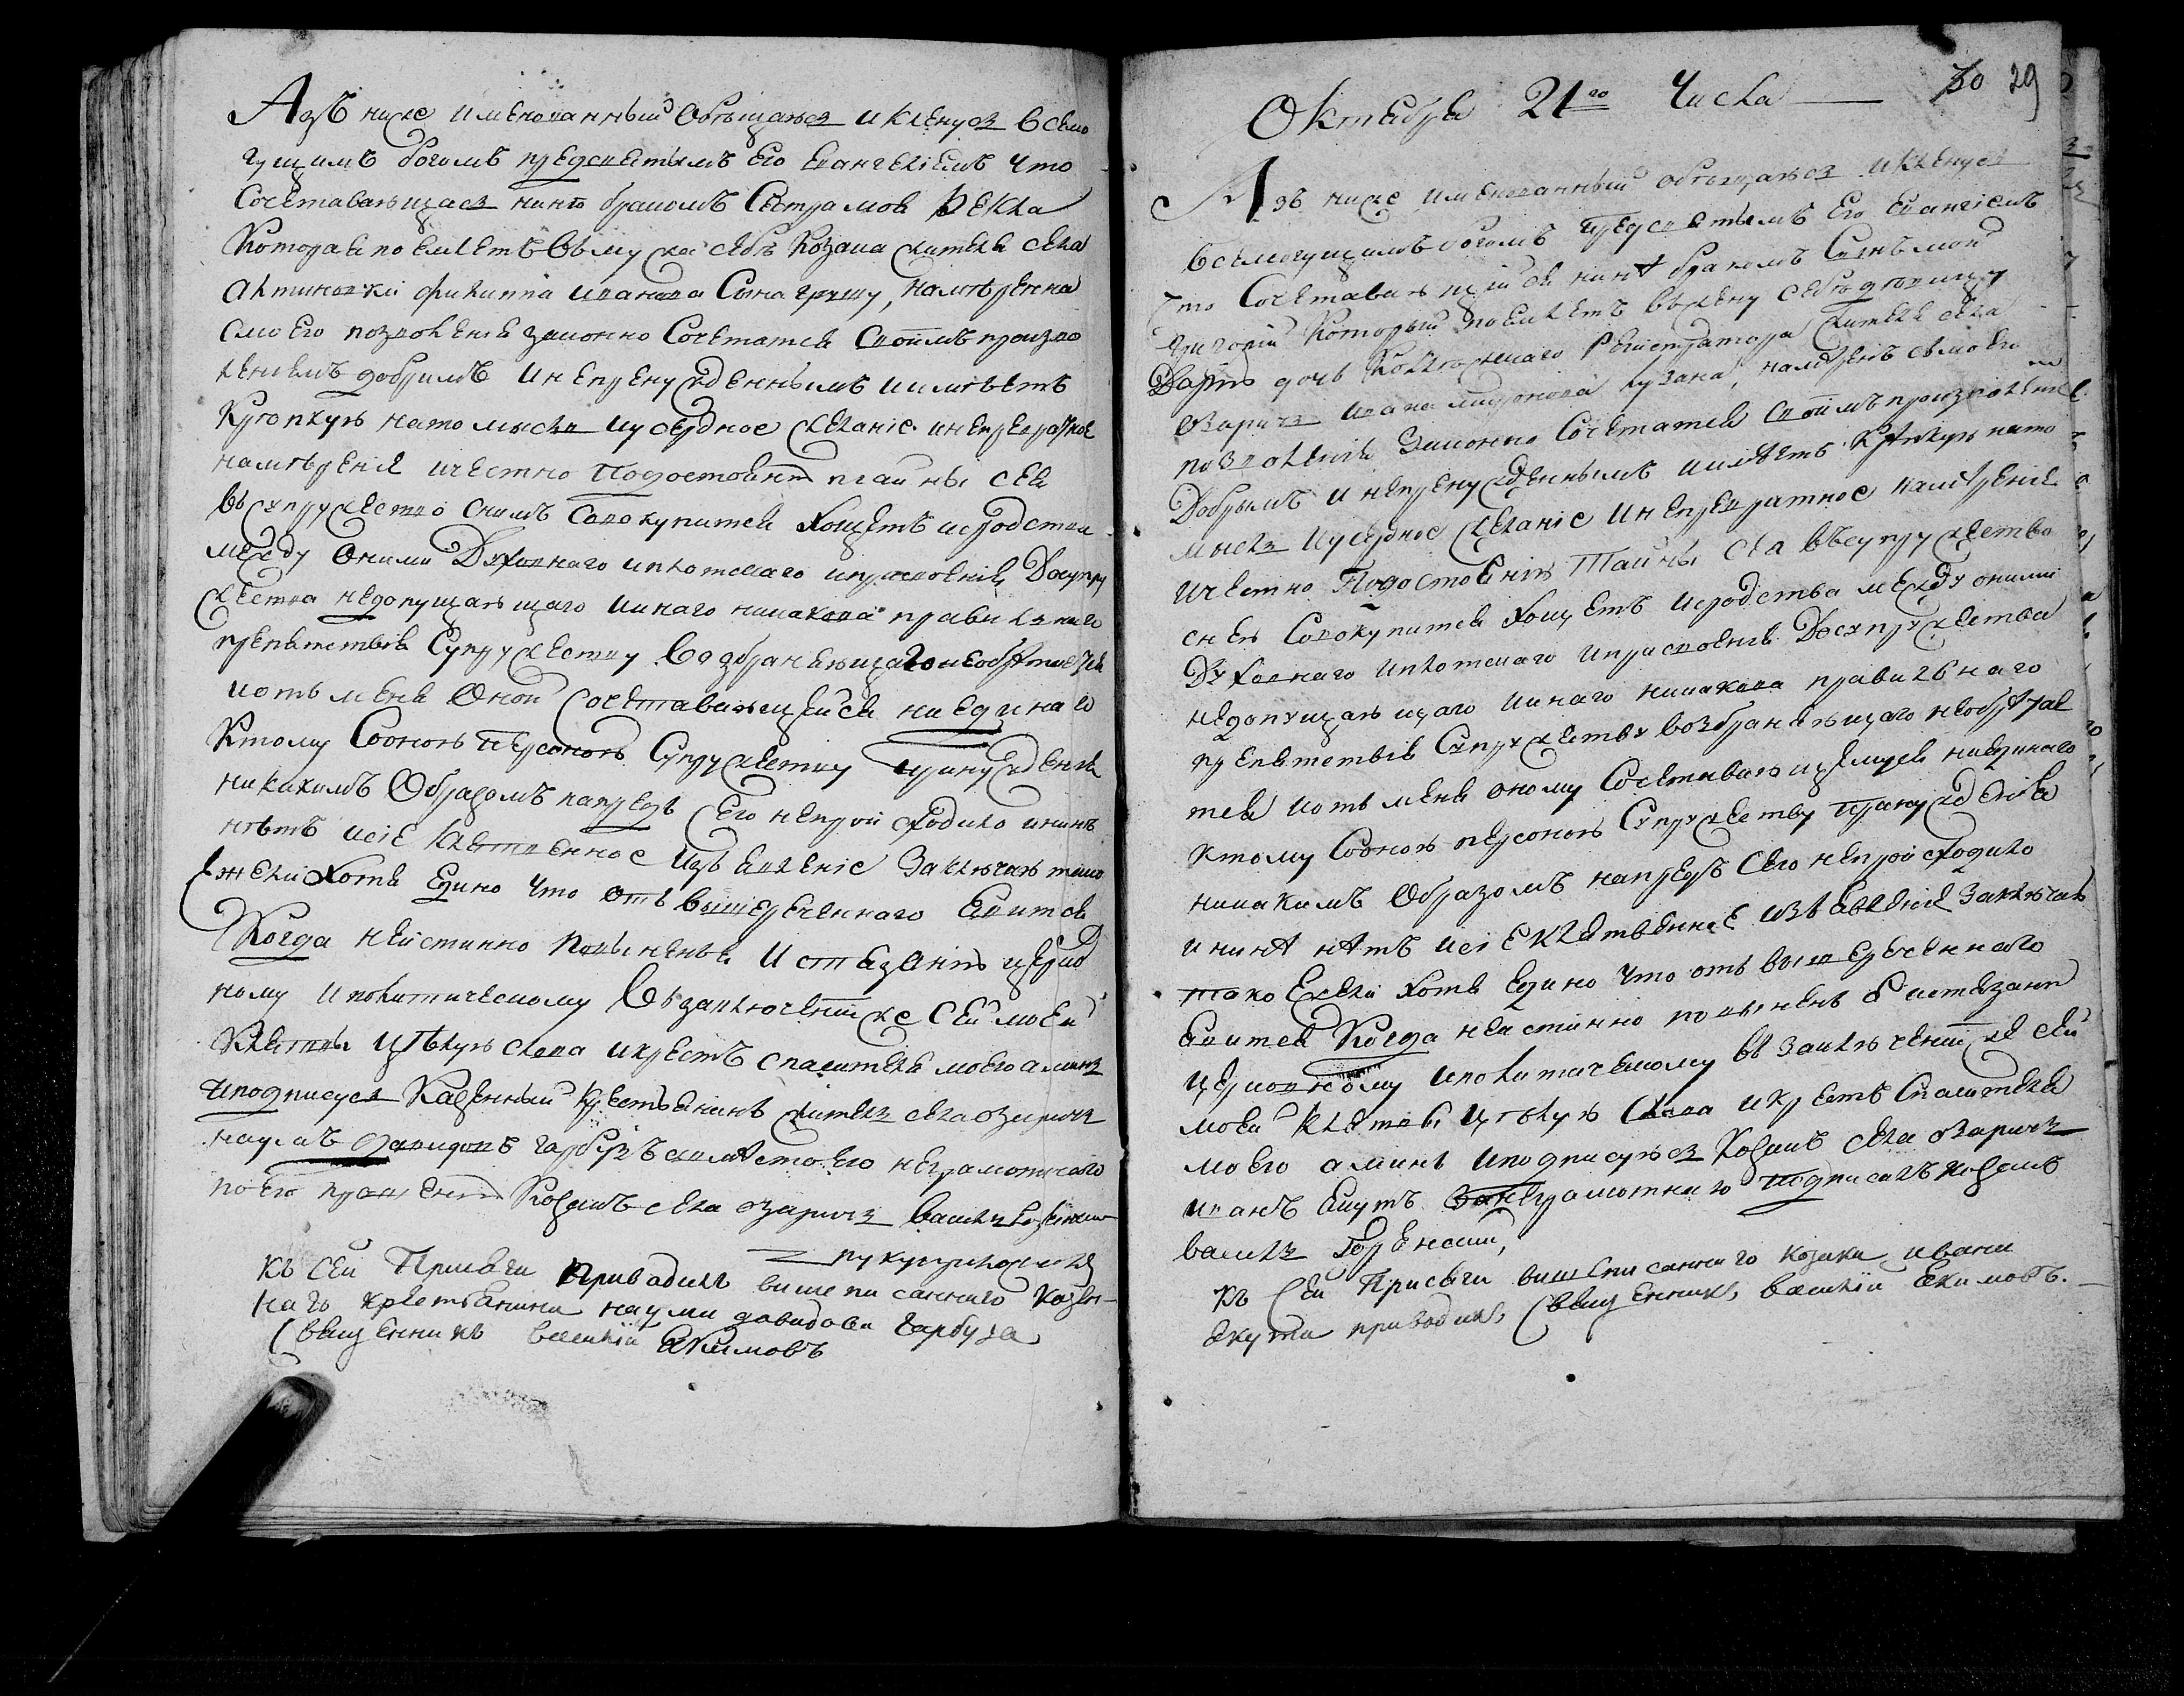 Азъ ниже именованный обѣщаюся и кленуся всемо
гущимъ богомъ предсветымъ Его Евангелiемъ что
Сочетавающаяся нинѣ бракомъ Сестра моя Fекла
Которая поемлетъ въ мужа себѣ козака жителя села
Ивана Сына Грушу, намѣренна
с моего позволенiя законно Сочетатся своимъ произво
ленiемъ добримъ и непренужденнымъ и имѣетъ
крѣпкую на то мысль и усердное желанiе и непревратное
намѣренiе и честно по достоянiю тайны сея
въ супружество снимъ совокупится хощетъ и сродства
между оними Духовнаго и плотскаго и присвоенiя Досупру
жества недопущающаго и инаго никакова правилнаго
препятствiя Супружеству возбраняющаго необрѣтается
и отъ мене Оной Сочетавающейся ни единаго
Ктому Сооною персоною Супружеству принужденiя
никакимъ Образомъ напредъ сего непроисходило и нинѣ
нѣтъ и сiе клятвенное изъявленiе заключаю тако
Ежели Хотя Едино что отъ вышереченнаго Явится
Когда неистинно повиненъ Истязанiю церков
ному и политическому въ заключенiи же Сей моей
клятвы цѣлую слова и крестъ спасителя моего аминь
и подписуся Казенный крестьянинъ житель села озаричъ
наумъ давидовъ гарбузъ а вмѣсто его неграмотного
по его прошенiю козакъ села озаричъ василь
руку приложилъ
къ сей Присяги приводилъ вишеписанного казен-
наго крестьянина наума давидова гарбуза
священникъ василiй Якимовъ
30 29
Октября 21го Числа
Азъ ниже именованный обѣщаюся и кленуся
всемогущимъ богомъ предсветымъ Его Евангiемъ
что Сочетавающiйся нинѣ бракомъ Сынъ мой
григорiй Который поемлетъ въ жену себѣ дѣвицу
Дарю дочь Коллежскаго Регистратора жителя села
Озаричъ Ивана, намѣренъ съ моего
позволенiя Законно Сочетатся своимъ произволенiем
Добрымъ и непренужденнымъ и имѣетъ крѣпкую на то
мысль и усердное желанiе и непревратное намѣренiе
и честно По достоянiю Тайны сея въ супружество
снею Совокупится хощетъ и сродства между оними
Духовнаго и плотскаго и присвоенiя До супружества
недопущающаго и инаго никакова правилнаго
препятствiя Супружеству возбраняющаго необрѣтае
тся и отъ мене оному Сочетавающемуся ниединаго
ктому Сооною персоною Супружеству принужденiя
никакимъ Образомъ напредъ Сего непроисходило
и нинѣ нѣтъ и сiе клятвенное изъявленiе заключаю
тако Ежели хотя Едино что отъ вышереченнаго
Явится Когда неистинно повиненъ истязанiю
церковному и политическому въ заключенiи же сей
моей клятвы цѣлую слова и крестъ Спасителя
моего аминь и подписуюся Козакъ села озаричъ
иванъ Якутъ за неграмотнаго подписалъ козакъ
василь
къ сей Присяги вишеписанного козака ивана
Якута приводилъ, священникъ василiй Якимовъ.